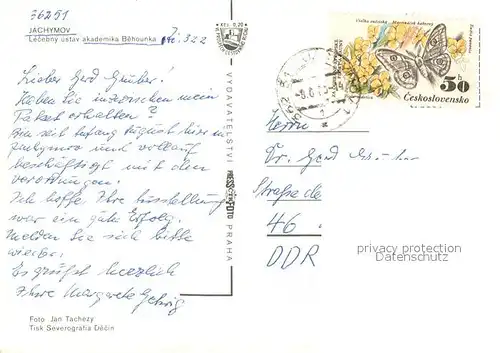 56251
JACHYMOV
Léčebný ústav akademika Běhounka
322
Kčs 0,20
Lieber Gerd Gruber!
Haben Sie inzwischen mein
Paket erhalten?
Bin seit Anfang August hier in
Jachymov und vollauf
beschäftigt mit den
Verordnungen.
Ich hoffe, Ihre Ausstellung
war ein guter Erfolg.
Melden Sie sich bitte
wieder.
Es grüßt herzlich
Ihre Margarete
Foto Jan Tachezy
Tisk Severografia Děčín
VYDAVATELSTVÍ PRESSFOTO PRAHA
50 h
Československo
Herrn
Dr. Gerd Gruber
Straße de
46
DDR
privacy protection
Datenschutz